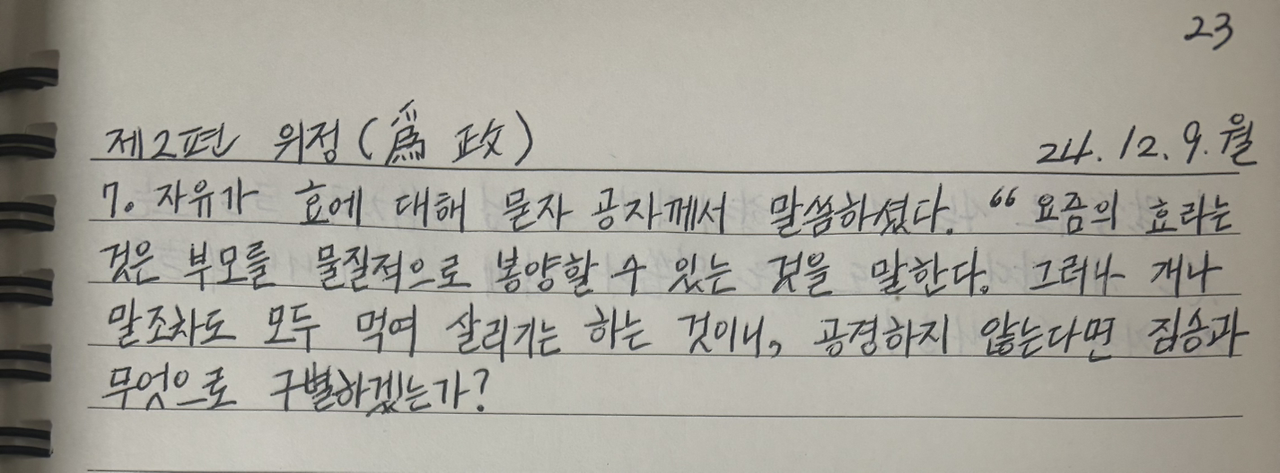 23
제2편 위정(爲政) 24.12.9.월
7. 자유가 효에 대해 묻자 공자께서 말씀하셨다. “요즘의 효라는
것은 부모를 물질적으로 봉양할 수 있는 것을 말한다. 그러나 개나
말조차도 모두 먹여 살리기는 하는 것이니, 공경하지 않는다면 짐승과
무엇으로 구별하겠는가?